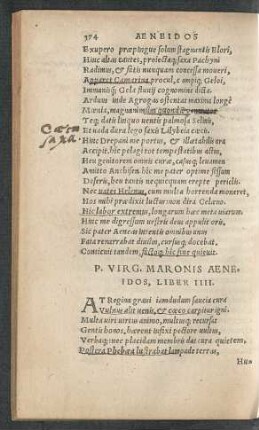 374 AENEIDOS
Exupero præpingue solum stagnantis Elori,
Hinc altas cautes, proiectaq; saxa Pachyni
Radimus, & fatis nunquam concessa moueri,
Apparet Camarina procul, & campiq; Geloi,
Immanisq; Gela fluuij cognomine dicta.
Arduus inde Agragas ostentat maxima longè
Mœnia, magnanimûm quondam generator
Teq; datis linquo uentis palmosa Selinis,
Et uada dura lego saxis Lilybeia cæcis.
Cæca
saxa.
Hinc Drepani me portus, & illætabilis ora
Accipit. hic pelagi tot tempestatibus actus,
Heu genitorem omnis curæ, casusq; leuamen
Amitto Anchisen. hic me pater optime fessum
Deseris, heu tantis nequicquam erepte periclis.
Nec uates Helenus, cum multa horrenda moneret,
Hos mihi prædixit luctus: non dira Celæno.
Hic labor extremus, longarum hæc meta uiarum.
Hinc me digressum uestris deus appulit oris.
Sic pater Aeneas intentis omnibus unus
Fata renarrabat diuûm, cursusq; docebat.
Conticuit tandem, factoq; hic fine quieuit.
P. VIRG. MARONIS AENE-
IDOS, LIBER IIII.
AT Regina graui iamdudum saucia cura
Vulnus alit uenis, & cæco carpitur igni.
Multa uiri uirtus animo, multusq; recursat
Gentis honos, hærent infixi pectore uultus,
Verbaq; nec placidam membris dat cura quietem.
Postera Phœbea lustrabat lampade terras,